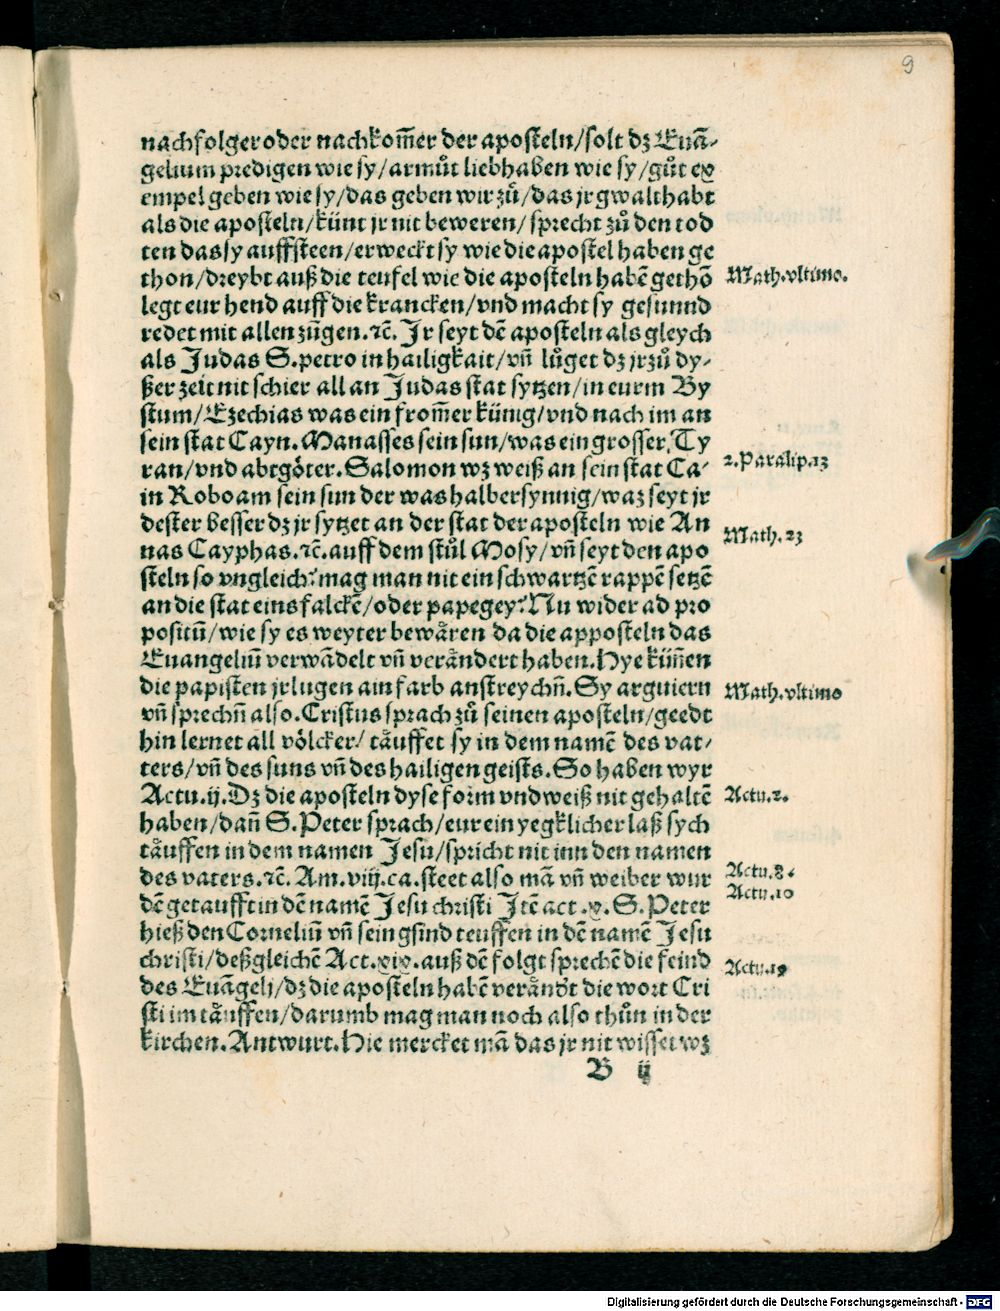 9
nachfolger oder nachkom̃er der aposteln/solt dz Euã-
gelium predigen wie sy/armůt liebhaben wie sy/gůt ex
empel geben wie sy/das geben wir zů/das jr gwalt habt
als die aposteln/künt jr nit beweren/sprecht zů den tod
ten das sy auffsteen/erweckt sy wie die apostel haben ge
thon/dreybt auß die teufel wie die aposteln habẽ gethõ
Math.vltimo.
legt eur hend auff die krancken/vnd macht sy gesunnd
redet mit allen zũgen.ꝛc̃. Jr seyt dẽ aposteln als gleych
als Judas S.petro in hailigkait/vñ lůget dz jr zů dy-
ßer zeit nit schier all an Judas stat sytzen/in eurm By
stum/Ezechias was ein from̃er künig/vnd nach im an
sein stat Cayn.Manasses sein sun/was ein grosser Ty
ran/vnd abtgöter.Salomon wz weiß an sein stat Ca-
2.Paralip.13
in Roboam sein sun der was halber synnig/waz seyt jr
dester besser dz jr sytzet an der stat der aposteln wie An
Math.23
nas Cayphas.ꝛc̃.auff dem stůl Mosy/vñ seyt den apo
steln so vngleich? mag man nit ein schwartzẽ rappẽ setzẽ
an die stat eins falckẽ/oder papegey? Nu wider ad pro
positũ/wie sy es weyter bewären da die apposteln das
Euangeliũ verwãdelt vñ verändert haben.Hye küñen
die papisten jr lugen ain farb anstreychñ.Sy arguiern
Math.vltimo
vñ sprechñ also.Cristus sprach zů seinen aposteln/geedt
hin lernet all völcker/ täuffet sy in dem namẽ des vat-
ters/vñ des suns vñ des hailigen geists.So haben wyr
Actu.ij.Dz die aposteln dyse form vnd weiß nit gehaltẽ
Actu.2.
haben/dañ S.Peter sprach/eur ein yegklicher laß sych
täuffen in dem namen Jesu/spricht nit inn den namen
des vaters.ꝛc̃. Am.viij.ca.steet also mã vñ weiber wur
Actu.8.
dẽ getaufft in dẽ namẽ Jesu christi Jtẽ act.x.S.Peter
Actu.10
hieß den Corneliũ vñ sein gsind teuffen in dẽ namẽ Jesu
christi/deßgleichẽ Act.xix.auß dẽ folgt sprechẽ die feind
Actu.19
des Euãgelj/dz die aposteln habẽ verändt die wort Cri
sti im täuffen/darumb mag man noch also thůn in der
kirchen.Antwurt.Hie mercket mã das jr nit wisset wz
B ij
Digitalisierung gefördert durch die Deutsche Forschungsgemeinschaft - DFG